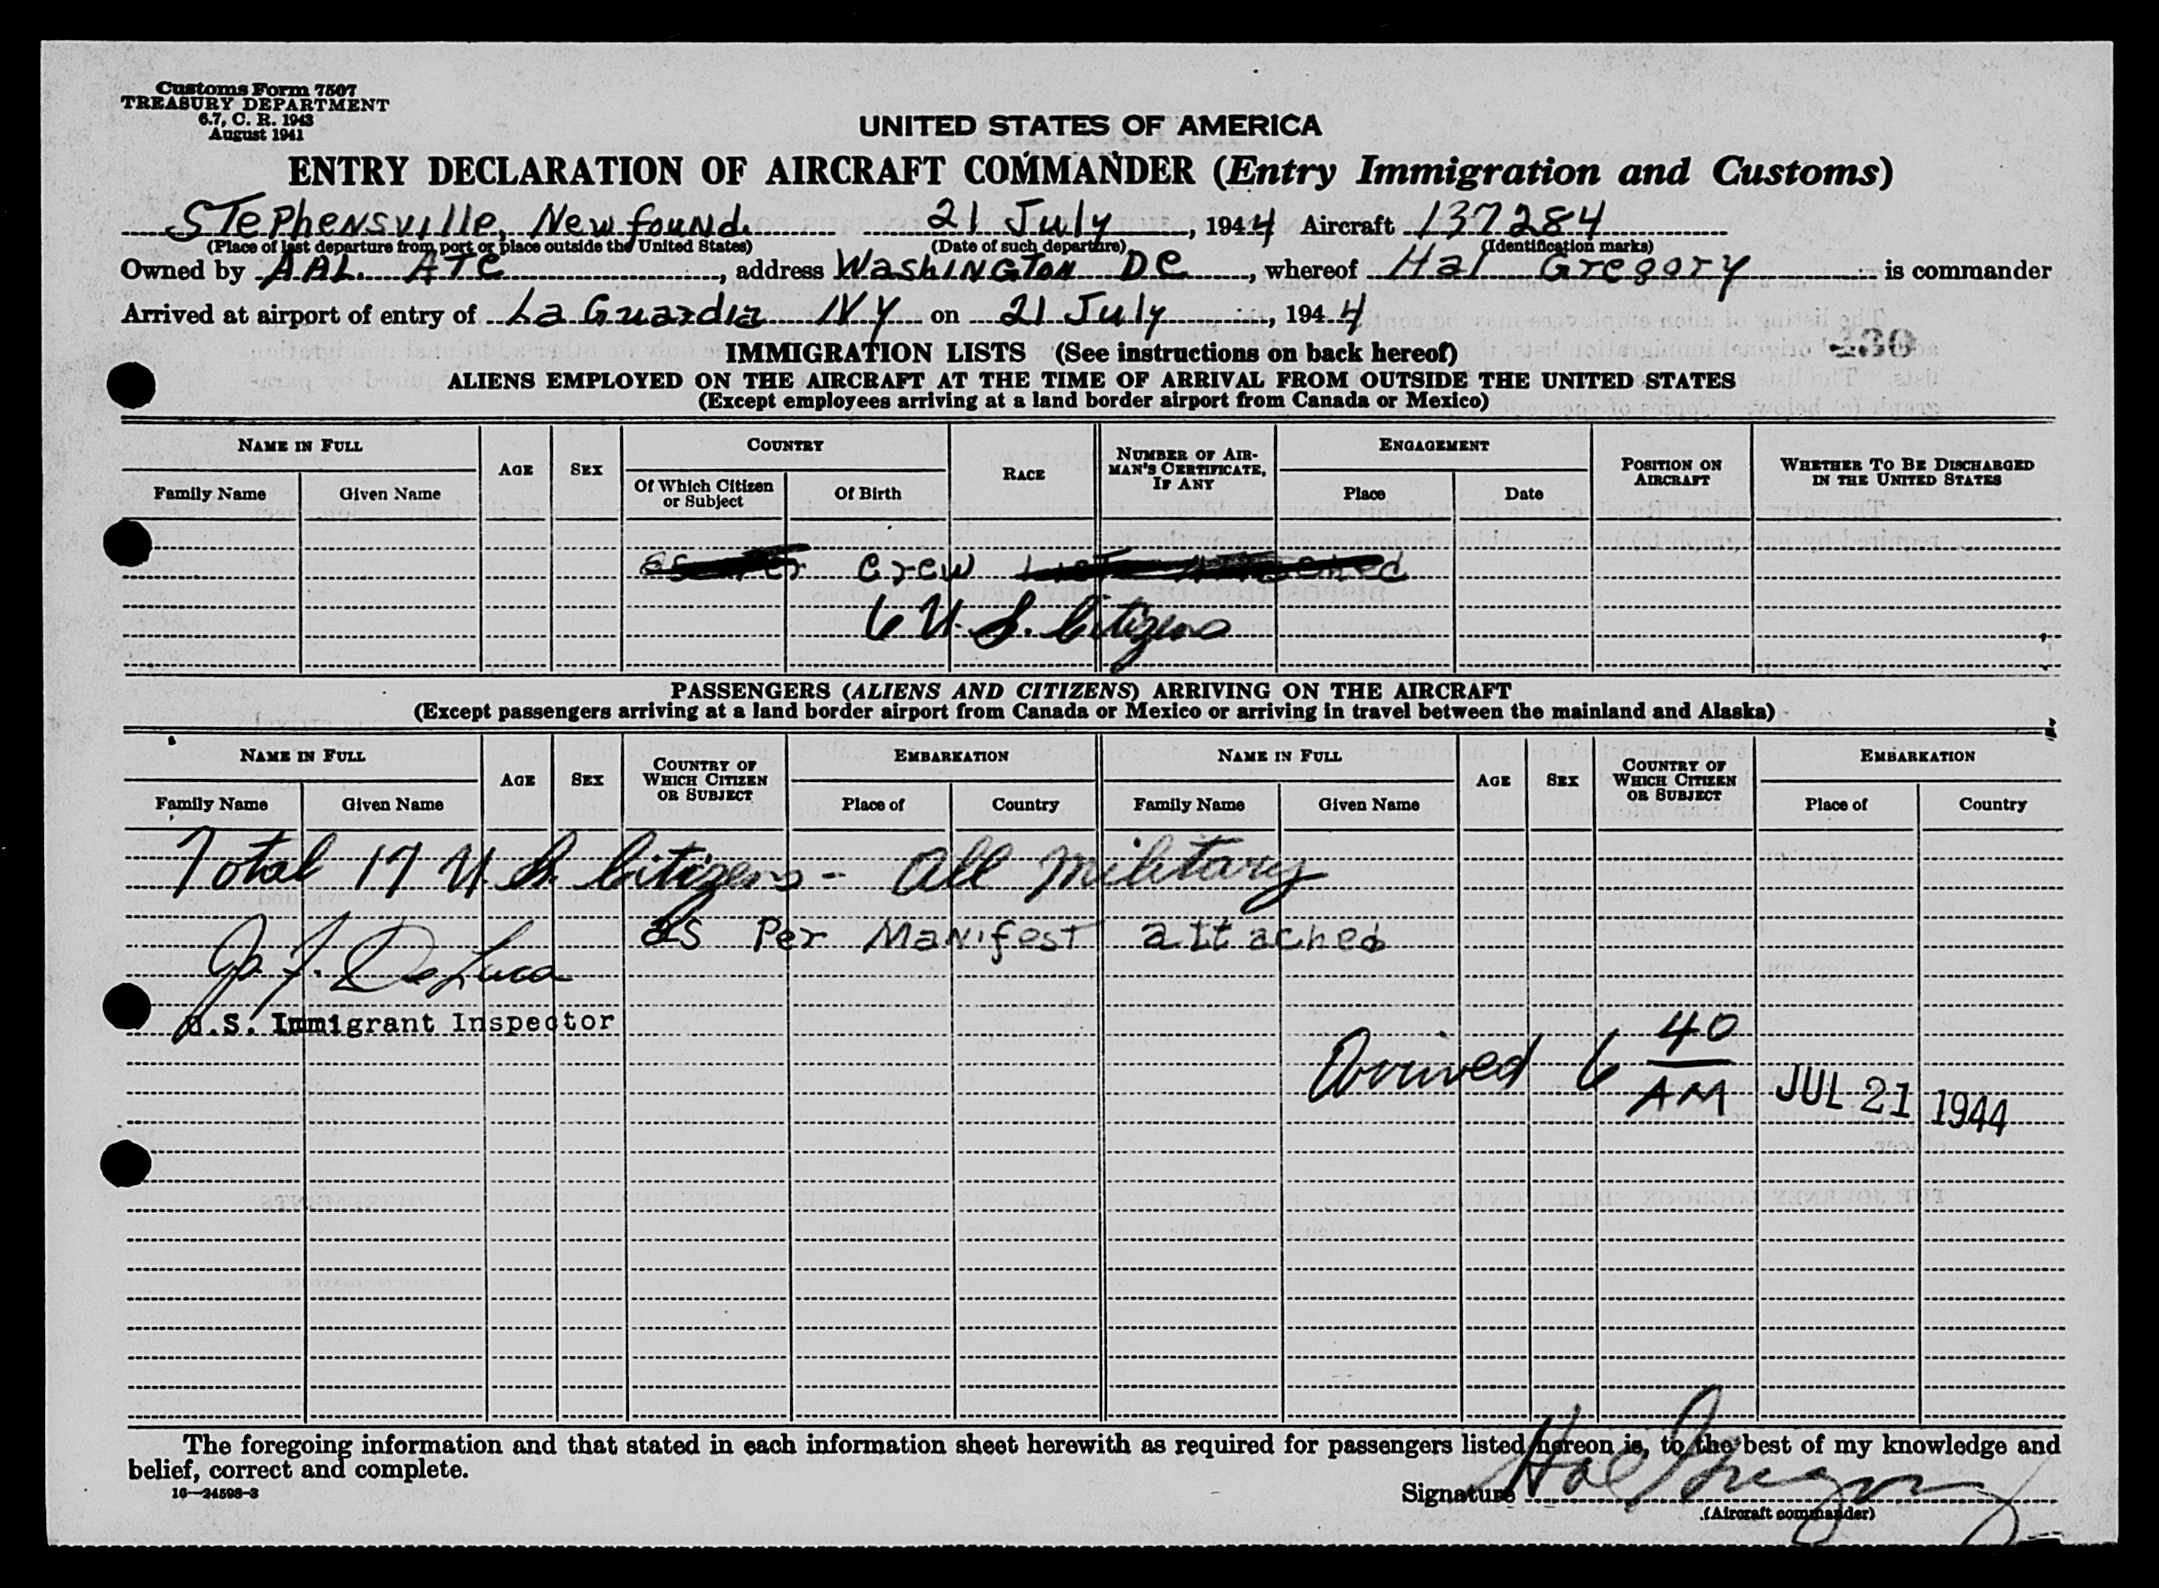 Customs Form 7507
TREASURY DEPARTMENT
6.7, C. R. 1943
August 1941
UNITED STATES OF AMERICA
ENTRY DECLARATION OF AIRCRAFT COMMANDER (Entry Immigration and Customs)
STephensville, Newfound. 21 July, 1944 Aircraft 137284
(Place of last departure from port or place outside the United States) (Date of such departure) (Identification marks)
Owned by AAL. ATC, address Washington DC, whereof Hal Gregory is commander
Arrived at airport of entry of La Guardia NY on 21 July, 1944
IMMIGRATION LISTS (See instructions on back hereof)
ALIENS EMPLOYED ON THE AIRCRAFT AT THE TIME OF ARRIVAL FROM OUTSIDE THE UNITED STATES
(Except employees arriving at a land border airport from Canada or Mexico)
NAME IN FULL AGE SEX COUNTRY RACE NUMBER OF AIRMAN'S CERTIFICATE, IF ANY ENGAGEMENT POSITION ON AIRCRAFT WHETHER TO BE DISCHARGED IN THE UNITED STATES
Family Name Given Name Of Which Citizen or Subject Of Birth Place Date
Crew
6 U.S. Citizens
PASSENGERS (ALIENS AND CITIZENS) ARRIVING ON THE AIRCRAFT
(Except passengers arriving at a land border airport from Canada or Mexico or arriving in travel between the mainland and Alaska)
NAME IN FULL AGE SEX COUNTRY OF WHICH CITIZEN OR SUBJECT EMBARKATION NAME IN FULL AGE SEX COUNTRY OF WHICH CITIZEN OR SUBJECT EMBARKATION
Family Name Given Name Place of Country Family Name Given Name Place of Country
Total 17 U.S. Citizens - All military
as Per Manifest attached
De Luca
U.S. Immigrant Inspector
Arrived 6 40 AM JUL 21 1944
The foregoing information and that stated in each information sheet herewith as required for passengers listed hereon is, to the best of my knowledge and
belief, correct and complete.
16—24598-3
Signature Hal Gregory
(Aircraft commander)